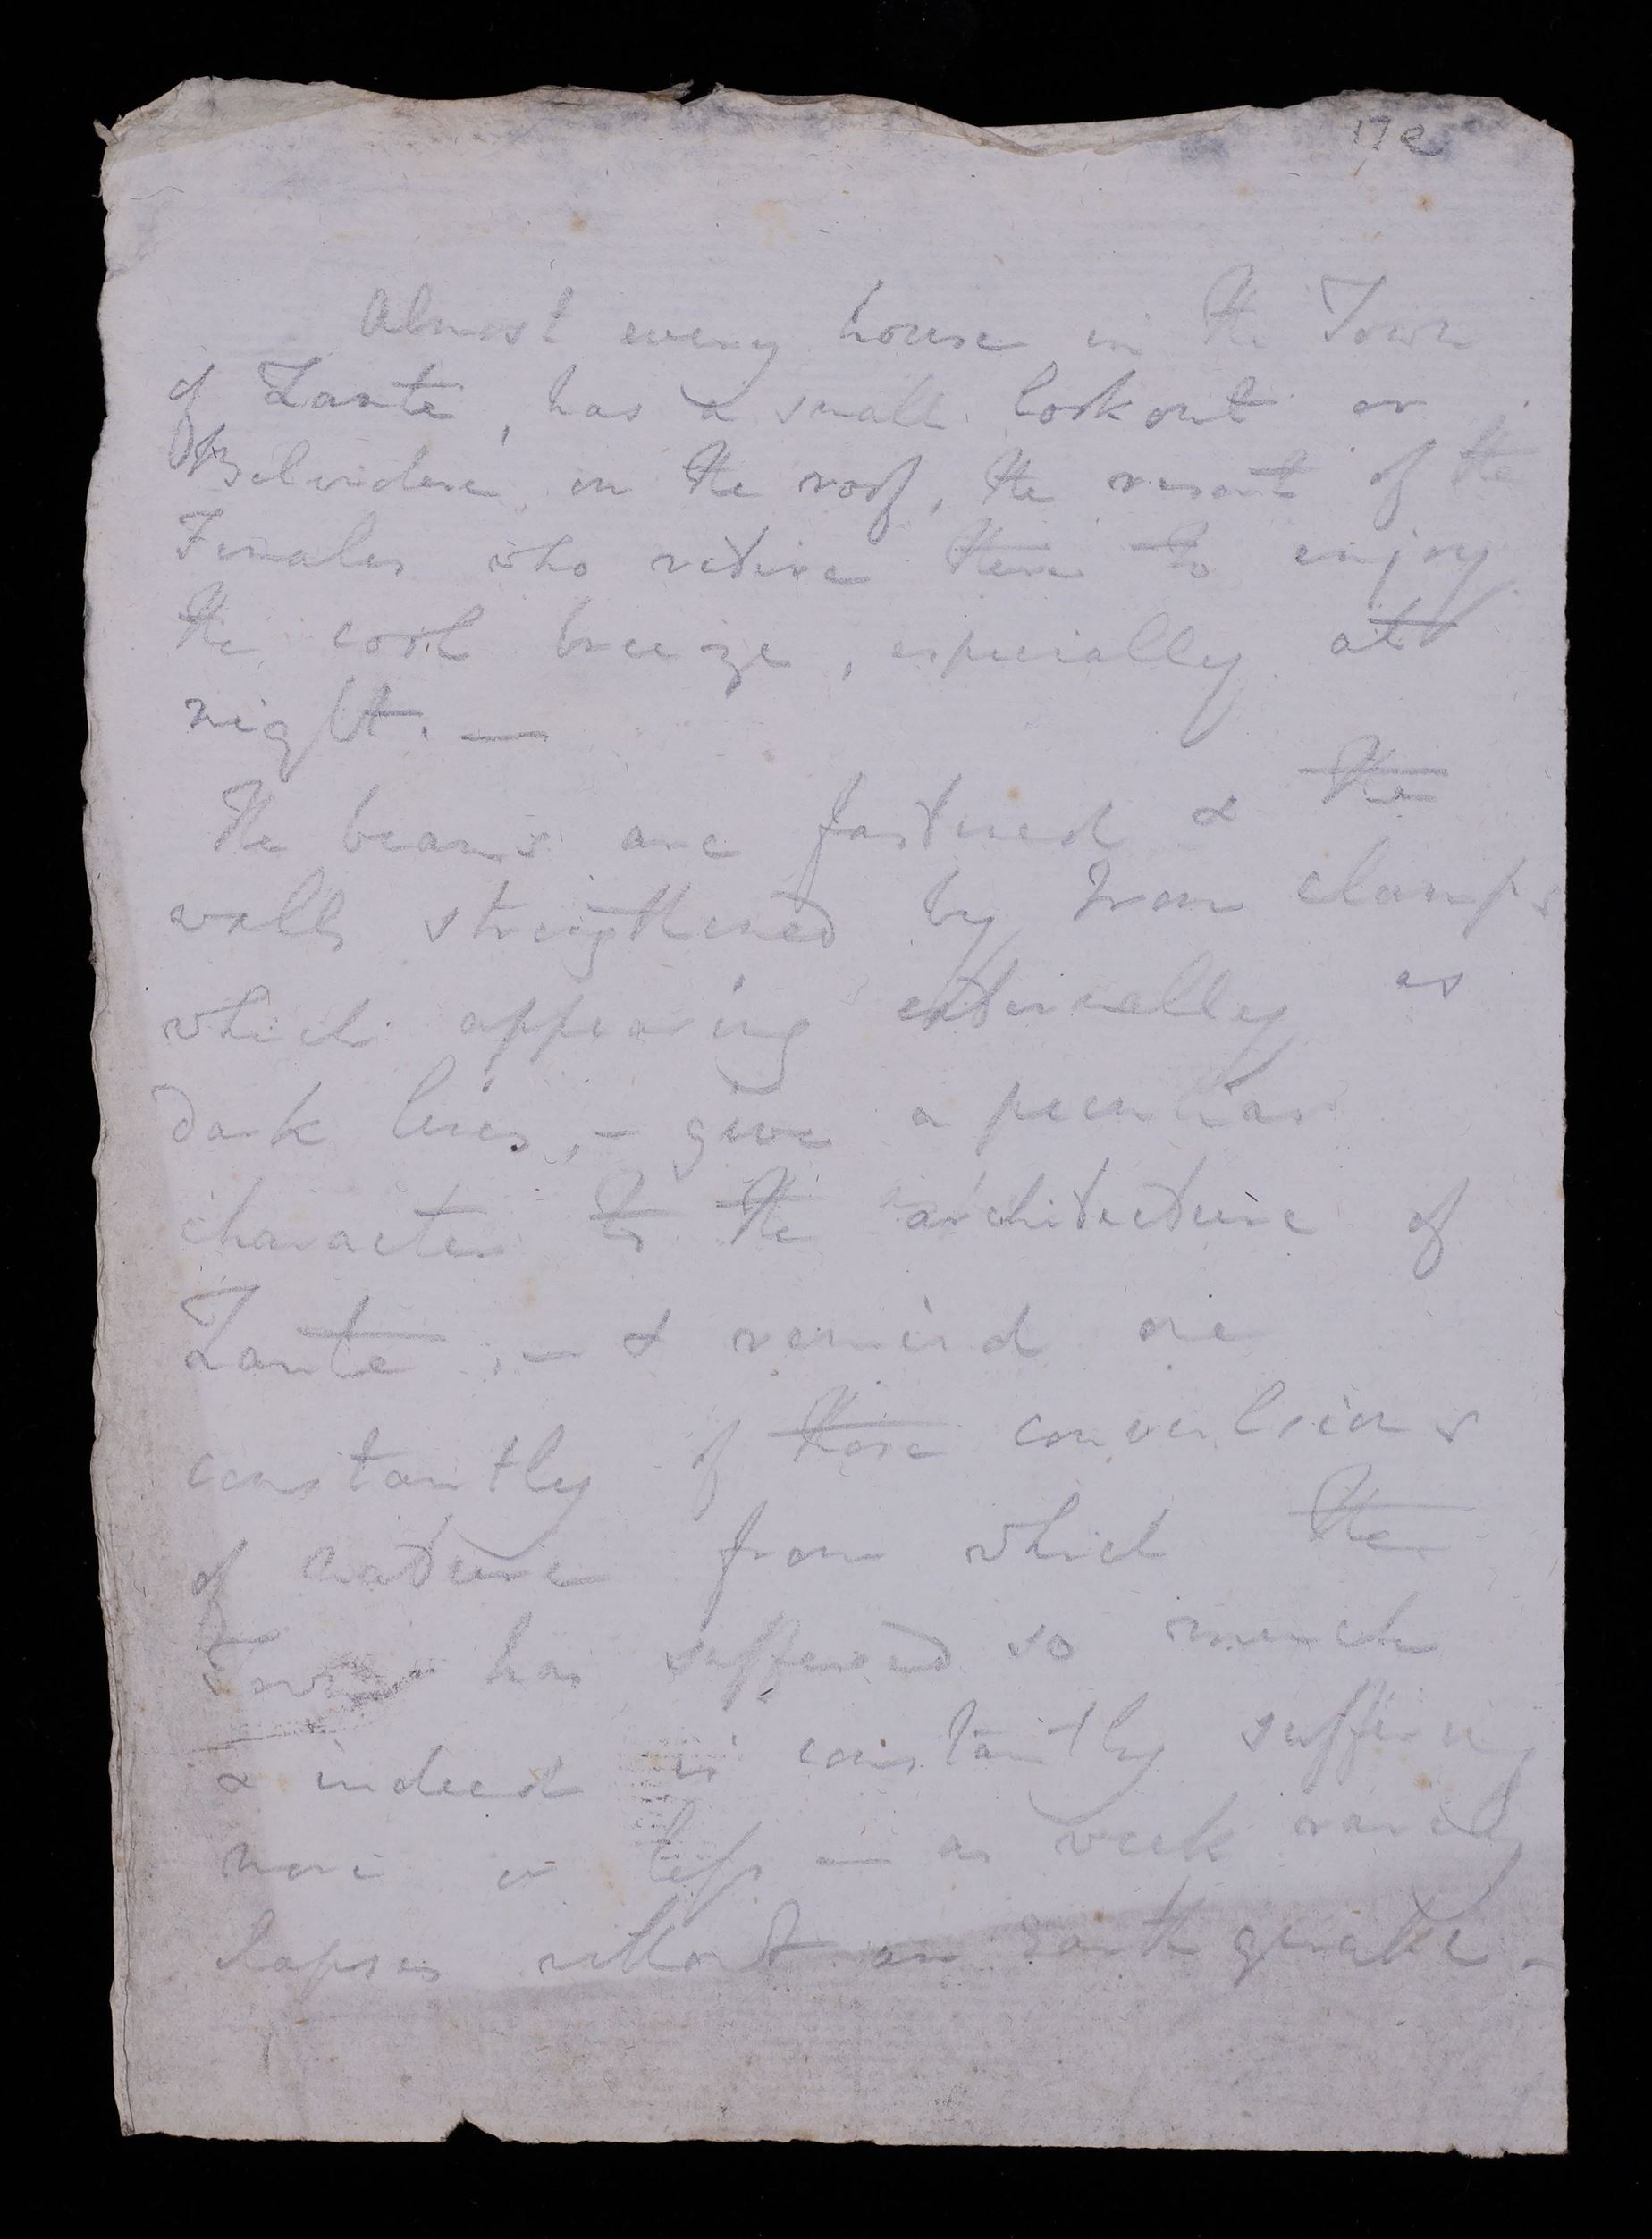 17e
Almost every house in the Town
of Zante, has a small lookout or
Belvidere in the roof, the resort of the
Females who retire there to enjoy
the cool breeze, especially at
night. —
The beams are fastened & the
walls strengthened by Iron clamps
which appearing externally as
dark lines, – give a peculiar
character to the architecture of
Zante, – & remind one
constantly of those convulsions
of nature from which the
Town has suffered so much
& indeed is constantly suffering
more or less — as week rarely
elapses without an Earthquake –